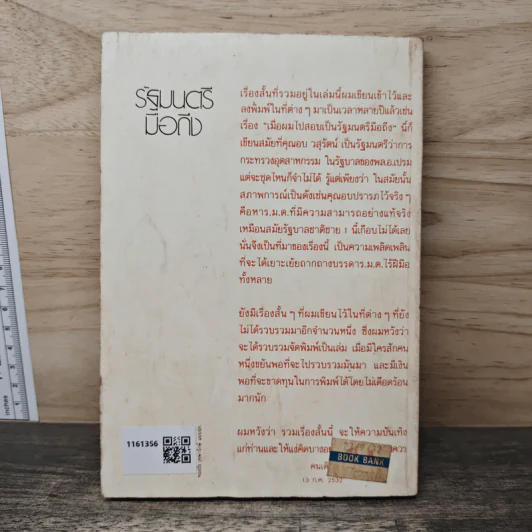 รัฐมนตรี
มือถึง
เรื่องสั้นที่รวมอยู่ในเล่มนี้ผมเขียนเข้าไว้และ
ลงพิมพ์ในที่ต่าง ๆ มาเป็นเวลาหลายปีแล้วเช่น
เรื่อง "เมื่อผมไปสอบเป็นรัฐมนตรีมือถึง" นี้ก็
เขียนสมัยที่คุณอบ วสุรัตน์ เป็นรัฐมนตรีว่าการ
กระทรวงอุตสาหกรรม ในรัฐบาลของพล.อ.เปรม
แต่จะชุดไหนก็จำไม่ได้ รู้แต่เพียงว่า ในสมัยนั้น
สภาพการณ์เป็นดังเช่นคุณอบปรารภไว้จริง ๆ
คือหาร.ม.ต.ที่มีความสามารถอย่างแท้จริง
เหมือนสมัยรัฐบาลชาติชาย 1 นี้เกือบไม่ได้เลย
นั่นจึงเป็นที่มาของเรื่องนี้ เป็นความเพลิดเพลิน
ที่จะได้เยาะเย้ยถากถางบรรดาร.ม.ต.ไร้ฝีมือ
ทั้งหลาย
ยังมีเรื่องสั้น ๆ ที่ผมเขียนไว้ในที่ต่าง ๆ ที่ยัง
ไม่ได้รวบรวมมาอีกจำนวนหนึ่ง ซึ่งผมหวังว่า
จะได้รวบรวมจัดพิมพ์เป็นเล่ม เมื่อมีใครสักคน
หนึ่งขยันพอที่จะไปรวบรวมมันมา และมีเงิน
พอที่จะขาดทุนในการพิมพ์ได้โดยไม่เดือดร้อน
มากนัก
ผมหวังว่า รวมเรื่องสั้นนี้ จะให้ความบันเทิง
แก่ท่านและให้แง่คิดบางอ
BOOK BANK
13 ก.ค. 2532
1161356